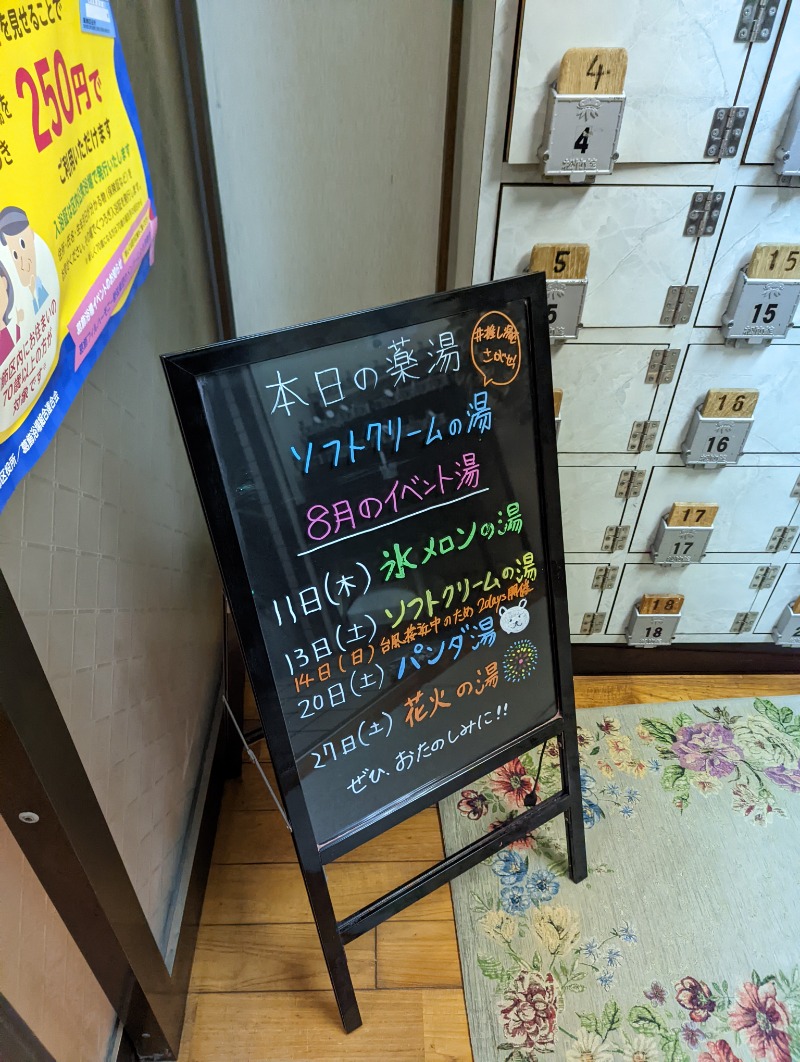 を見せることで
250円で
ご利用いただけます
70歳以上の方が
対象です。
本日の薬湯
#推し湯を
さがせ!
ソフトクリームの湯
8月のイベント湯
11日(木) 氷メロンの湯
13日(土) ソフトクリームの湯
14日(日) 台風接近中のため 2days開催
20日(土) パンダ湯
27日(土) 花火の湯
ぜひ、おたのしみに!!
4
4
5
5
15
15
16
16
17
17
18
18